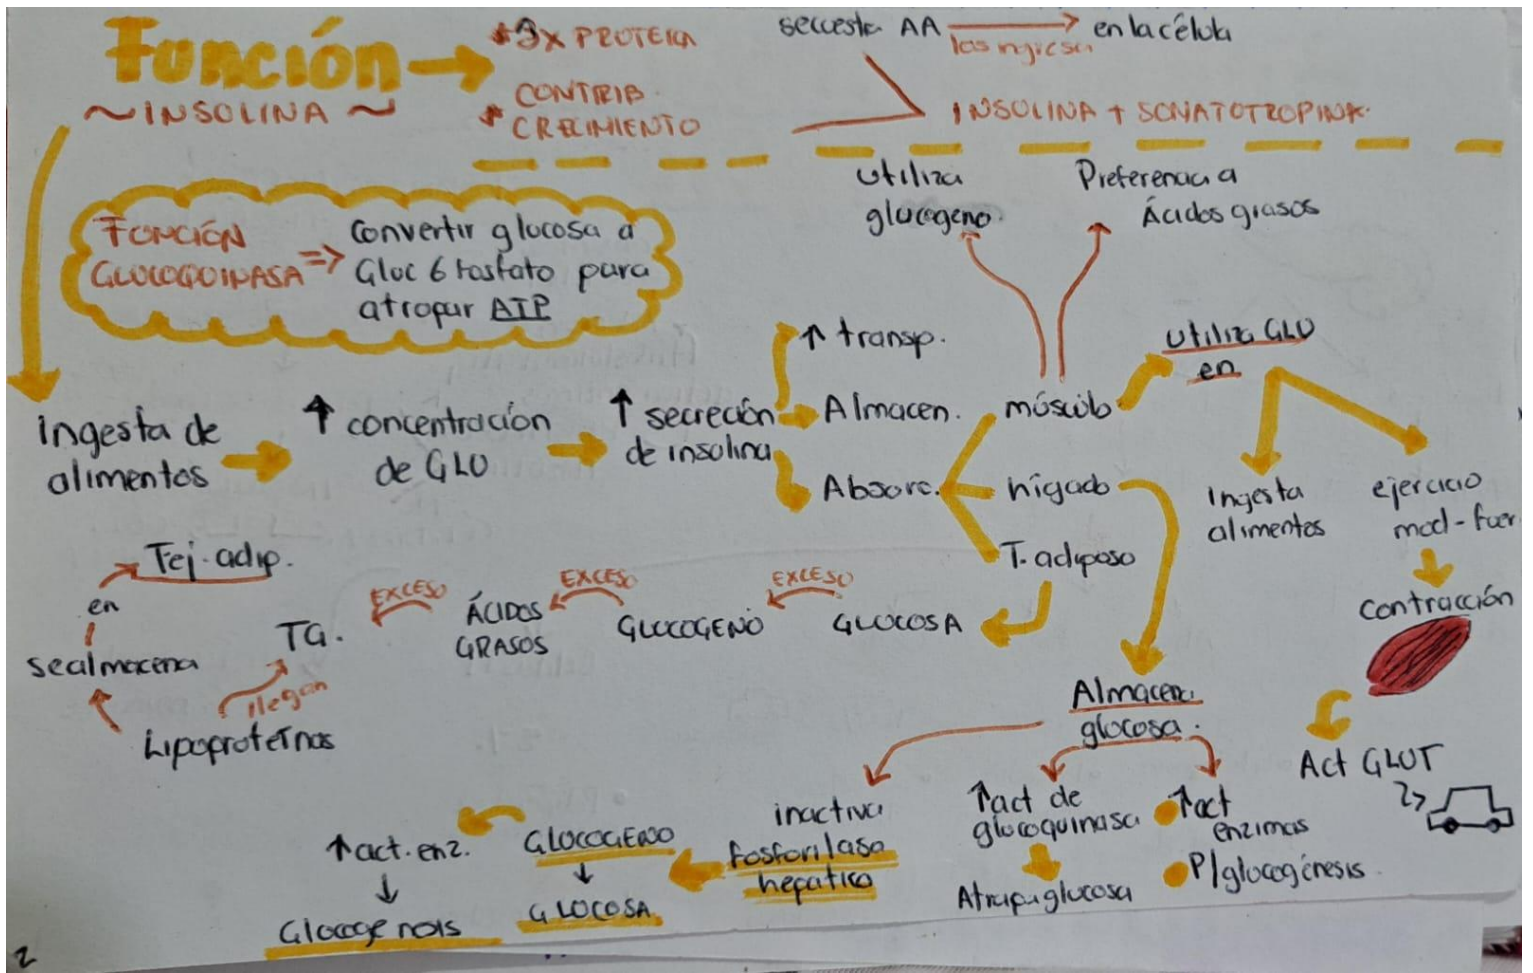 Función
~ INSOLINA ~
* Sx PROTEINA
* CONTRIB.
CRECIMIENTO
secuestra AA
las ingresa
en la célula
INSOLINA + SOMATOTROPINA.
FUNCIÓN
GLUCOQUINASA =>
convertir glucosa a
Gluc 6 fosfato para
atrapar ATP
utiliza
glucógeno.
Preferencia a
Ácidos grasos
Ingesta de
alimentos
↑ concentración
de GLU
↑ secreción
de insulina
↑ transp.
Almacen.
Absorc.
músculo
hígado
T. adiposo
utiliza GLU
en
Ingesta
alimentos
ejercicio
mod-fuer
contracción
Act GLUT
Tej. adip.
en
se almacena
Lipoproteínas
llegan
TG.
EXCESO
ÁCIDOS
GRASOS
EXCESO
GLUCOGENO
EXCESO
GLUCOSA
Almacena
glucosa.
inactiva
fosforilasa
hepatica
↑act de
glucoquinasa
Atrapa glucosa
↑act
enzimas
P/glucogénesis.
GLUCOGENO
↓
GLUCOSA
↑act. enz.
↓
2